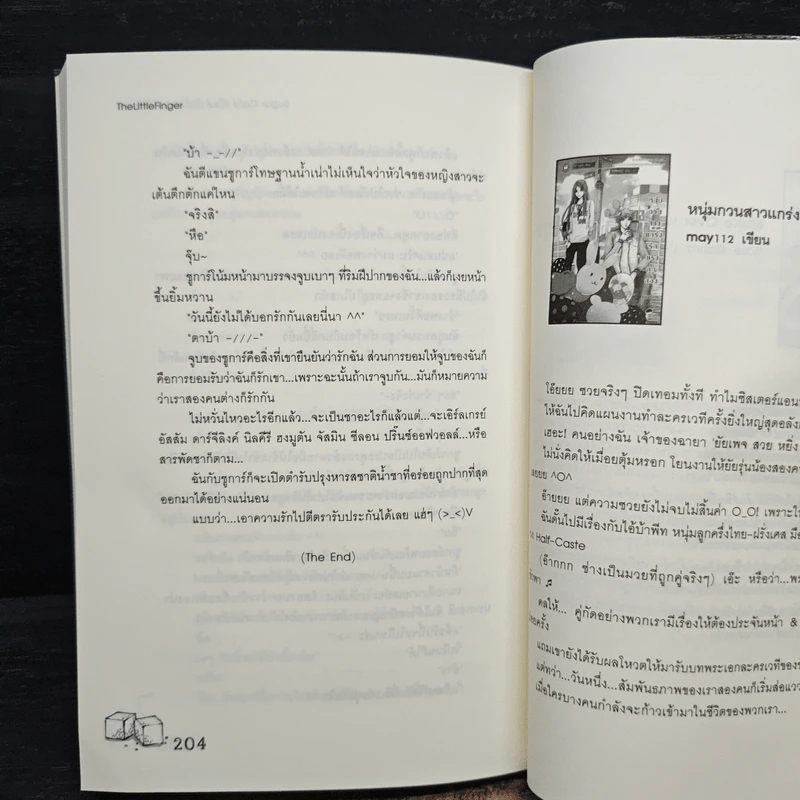 TheLittleFinger
"บ้า -_-//"
ฉันตีแขนชูการ์โทษฐานน้ำเน่าไม่เห็นใจว่าหัวใจของหญิงสาวจะ
เต้นตึกตักแค่ไหน
"จริงสิ"
"หือ"
จุ๊บ~
ชูการ์โน้มหน้ามาบรรจงจูบเบาๆ ที่ริมฝีปากของฉัน...แล้วก็เงยหน้า
ขึ้นยิ้มหวาน
"วันนี้ยังไม่ได้บอกรักกันเลยนี่นา ^^"
"ตาบ้า -///-"
จูบของชูการ์คือสิ่งที่เขายืนยันว่ารักฉัน ส่วนการยอมให้จูบของฉันก็
คือการยอมรับว่าฉันก็รักเขา...เพราะฉะนั้นถ้าเราจูบกัน...มันก็หมายความ
ว่าเราสองคนต่างก็รักกัน
ไม่หวั่นไหวอะไรอีกแล้ว...จะเป็นชาอะไรก็แล้วแต่...จะเอิร์ลเกรย์
อัสสัม ดาร์จีลิงค์ นิลคีรี ฮงมูตัน จัสมิน ซีลอน ปรินซ์ออฟวอลล์...หรือ
สารพัดชาก็ตาม...
ฉันกับชูการ์ก็จะเปิดตำรับปรุงหารสชาติน้ำชาที่อร่อยถูกปากที่สุด
ออกมาได้อย่างแน่นอน
แบบว่า...เอาความรักไปตีตรารับประกันได้เลย แฮ่ๆ (>_<)V
(The End)
204
หนุ่มกวนสาวแกร่ง
may112 เขียน
โอ๊ยยย ซวยจริงๆ ปิดเทอมทั้งที ทำไมซิสเตอร์แอน
ให้ฉันไปคิดแผนงานทำละครเวทีครั้งยิ่งใหญ่สุดอลัง
เฮอะ! คนอย่างฉัน เจ้าของฉายา 'ยัยเพจ สวย หยิ่ง
ไม่นั่งคิดให้เมื่อยตุ้มหรอก โยนงานให้ยัยรุ่นน้องสองค
เยยย ^O^
อ๊ายยย แต่ความซวยยังไม่จบไม่สิ้นค่า O_O! เพราะ
ฉันดั้นไปมีเรื่องกับไอ้บ้าพีท หนุ่มลูกครึ่งไทย-ฝรั่งเศส มือ
Half-Caste
(อ๊ากกก ช่างเป็นมวยที่ถูกคู่จริงๆ) เอ๊ะ หรือว่า...พร
ดลให้... คู่กัดอย่างพวกเรามีเรื่องให้ต้องประจันหน้า &
แถมเขายังได้รับผลโหวตให้มารับบทพระเอกละครเวทีของ
แต่ทว่า...วันหนึ่ง...สัมพันธภาพของเราสองคนก็เริ่มส่อแวว
เมื่อใครบางคนกำลังจะก้าวเข้ามาในชีวิตของพวกเรา...